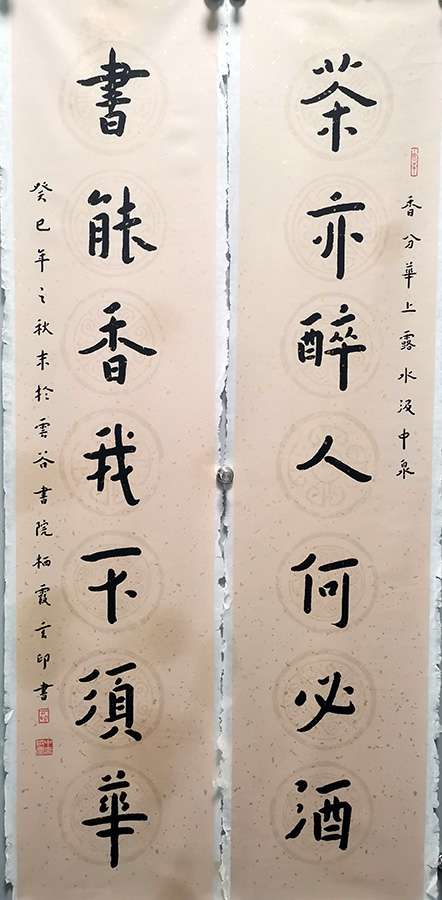 香分華上露水汲中泉
茶亦醉人何必酒
書能香我不須華
癸巳年之秋末於雲谷書院栖霞玄印書